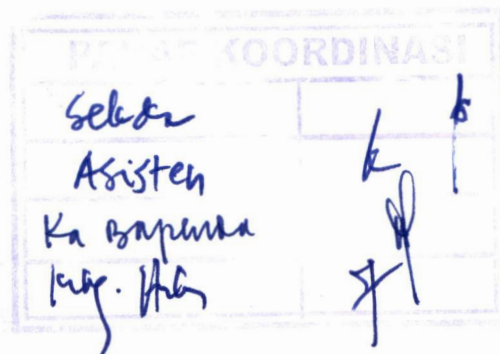 PARAF KOORDINASI
Sekda
Asisten
Ka Bapenda
Kabag. Huk